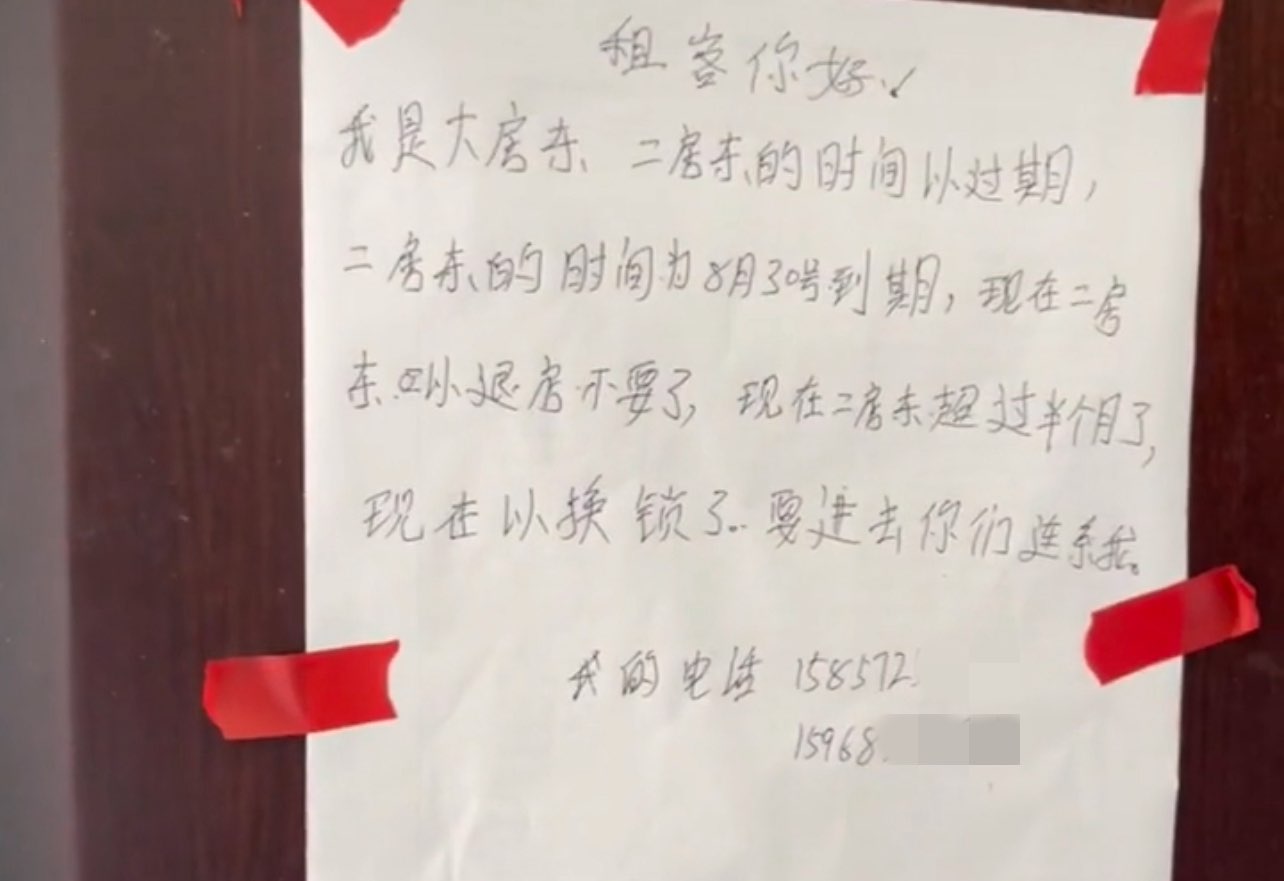 租客你好、
我是大房东、二房东的时间以过期，
二房东的时间为8月30号到期，现在二房
东以退房不要了，现在二房东超过半个月了，
现在以换锁了..要进去你们连系我。
我的电话 158572
15968